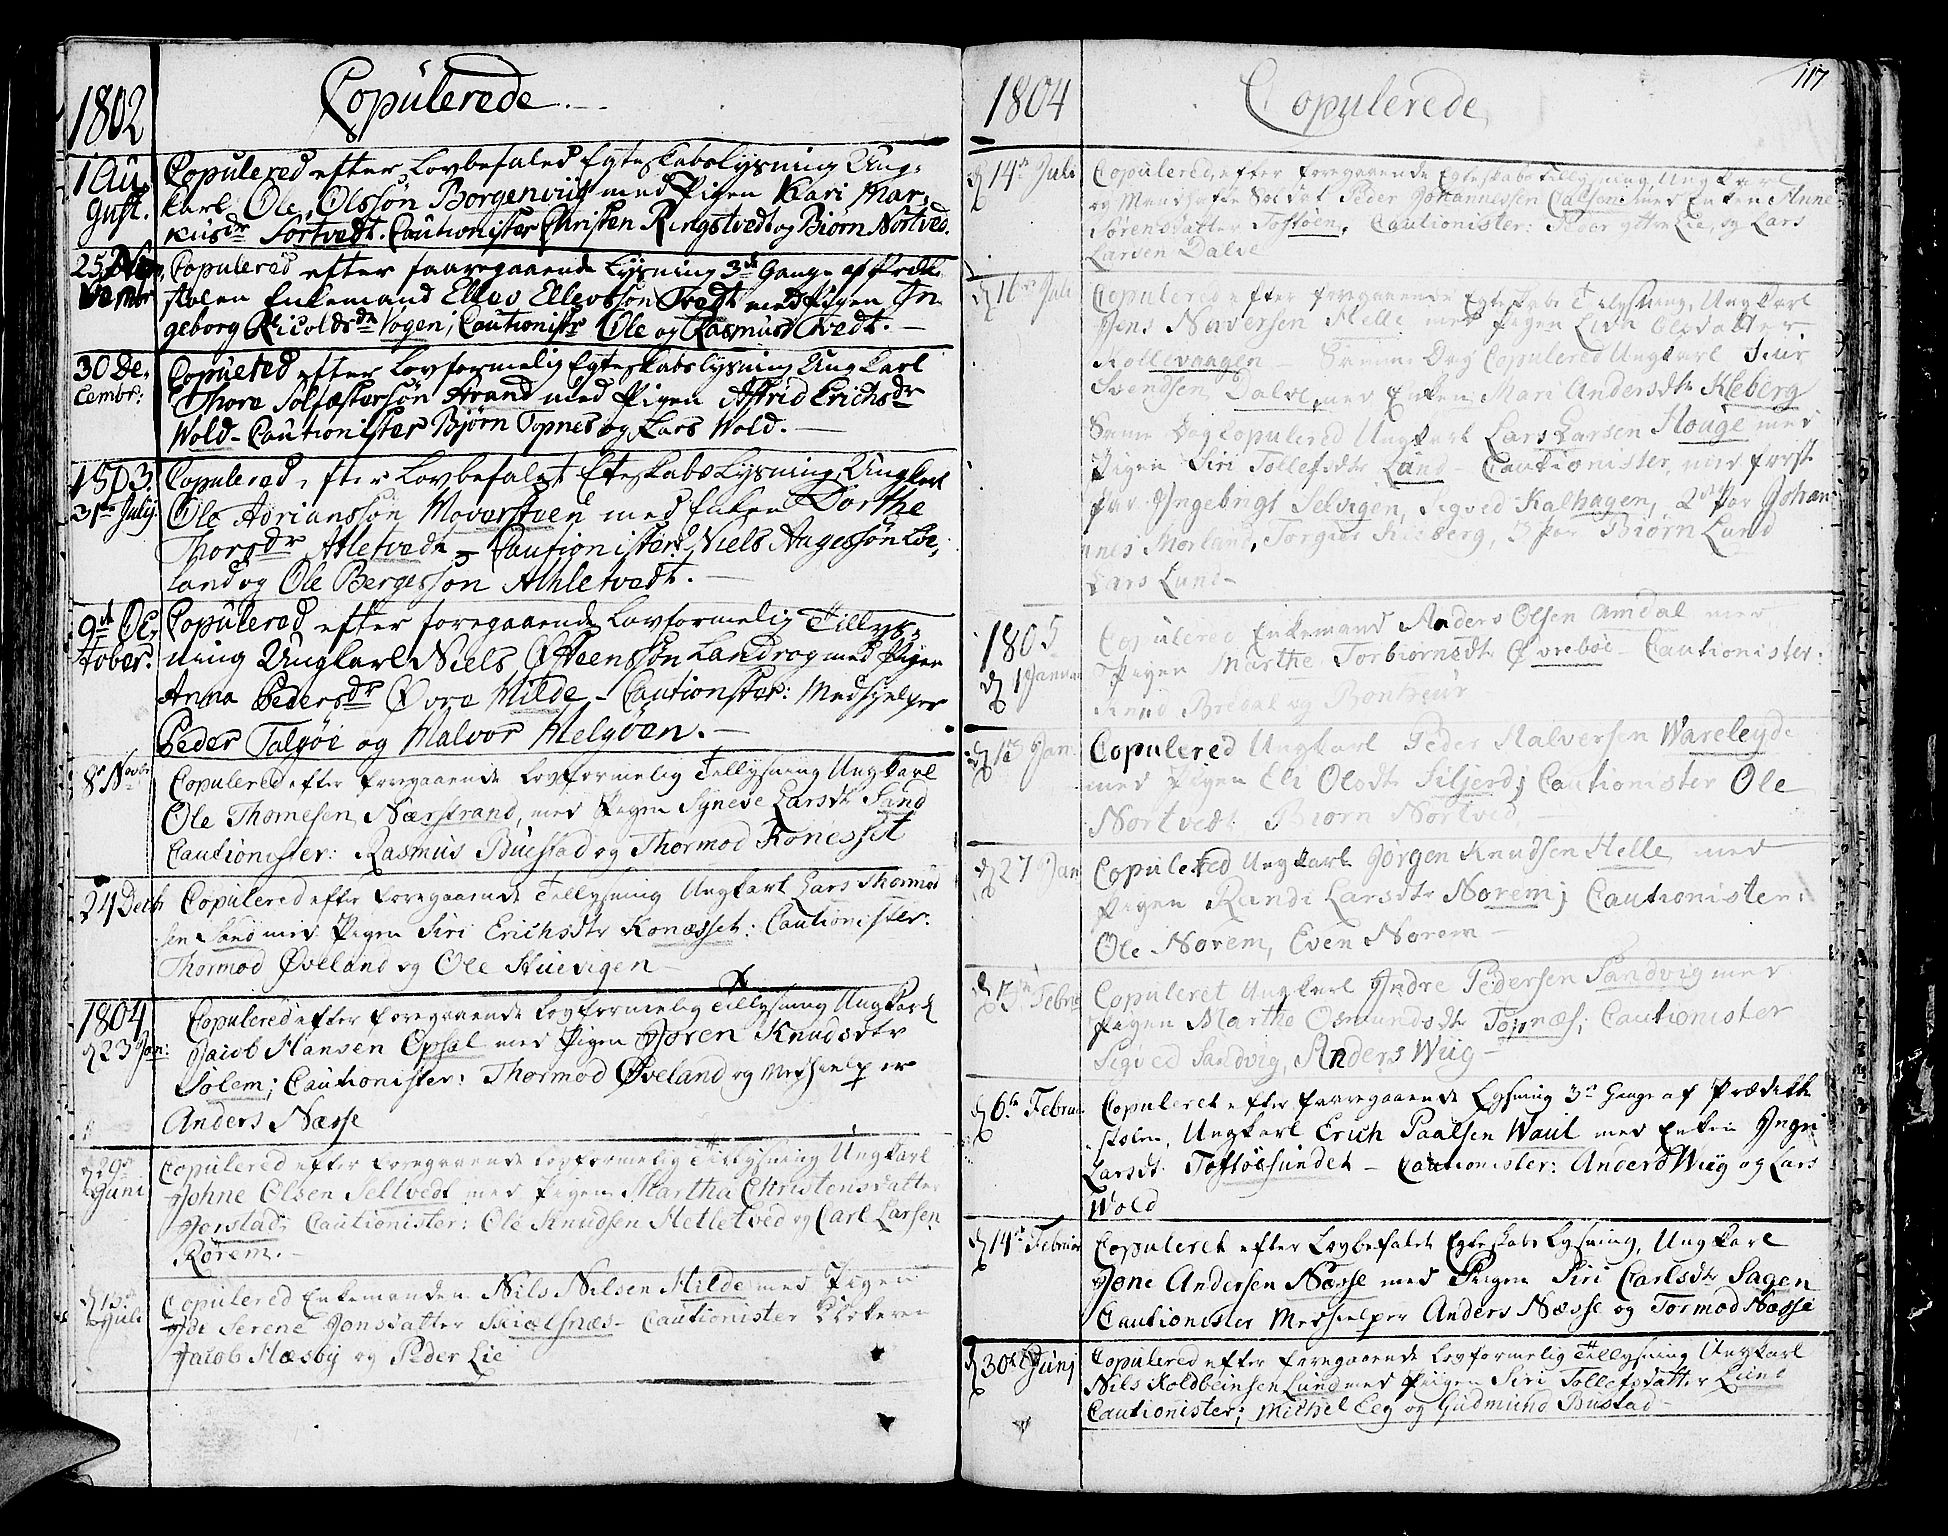 1802
Copulerede.
1 Au
gust.
Copulered efter Lovbefaled Egteskabslysning Ung
karl Ole Olssøn Borgenviig med Pigen Kari Mar
kusdr Sørtvedt. Cautionister Christen Ringstvedt og Biørn Nørtved.
25 No
vembr
Copulered efter faaregaaende Lysning 3de Gange af Prædik
stolen Enkemand Ellev Ellevssøn Tvedt med Pigen In
geborg Nicoldsdr Vogen; Cautionistr Ole og Rasmus Tvedt. -
30 De,
cembr:
Copulered efter Lovformelig Egteskabslysning Ungkarl
Thore Solfæstersøn Strand med Pigen Astrid Erichsdr
Wold - Cautionister Bjørn Topnes og Lars Wold. -
1803.
31te July
Copulered efter Lovbefalet Eteskabs Lysning Ungkarl
Ole Adrianssøn Moverstuen med Enken Dorthe
Thorsdr Atletvedt - Cautionister: Niels Aagessøn Loe,
land og Ole Bergessøn Athletvedt. -
9de Oc,
tober.
Copulered efter foregaaende Lovformelig Tillys,
ning Ungkarl Niels Østeenssøn Landrog med Pigen
Anna Pedersdr Øvre Hilde - Cautionster: Medhjelper
Peder Talgøe og Halvor Helgøen. -
8de Novbr
Copulered efter foregaaende Lovformelig Tillysning Ungkarl
Ole Thomesen Nærstrand, med Pigen Syneve Larsdtr Sand
Cautionister: Rasmus Buestad og Thormod Konesset
24 Decb
Copulered efter foregaaende Tillysning Ungkarl Lars Thormod
sen Sand med Pigen Siri Erichsdtr Konæsset: Cautionister:
Thormod Øveland og Ole Stuevigen -
1804
d 23 Jan:
Copulered efter foregaaende Lovformelig Tillysning Ungkarl
Jacob Hansen Opsal med Pigen Joren Knudsdtr
Solem; Cautionister: Thormod Øveland og Medhielper
Anders Næsse
d 29de
Juni
Copulered efter foregaaende Lovformelig Tillysning Ungkarl
Johne Olsen Seltvedt med Pigen Martha Christensdatter
Jorstad; Cautionister: Ole Knudsen Hetletved og Carl Larsen
Rørem. -
d 13de
Juli
Copulered Enkemanden Nils Nilsen Hilde med Pigen
Serene Jonsdatter Skiælsnæs - Cautionister Klokeren
Jacob Næsby og Peder Lie
117
1804
Copulerede
d 14de Juli
Copulered, efter foregaaende Egteskabs Tillysning, Ungkarl
og Mandhafte Soldat Peder Johannessen Dalsen med Enken Anne
Sørensdatter Toftøen, Cautionister: Peder yttre Lie, og Lars
Larsen Dalve
d 16de Juli
Copulered efter foregaaende Egteskabs Tillysning, Ungkarl
Jens Naversen Helle med Pigen Liva Olsdatter
Kollevaagen Samme Dag Copulered Ungkarl Siur
Svendsen Dalve, med Enken Mari Andersdtr Kleberg
Samme Dag Copulered Ungkarl Lars Larsen Houge med
Pigen Siri Tollefsdtr Lund Cautionister, ved første
par Ingebrigt Selvigen, Sigved Kalhagen, 2det Par Johan
nes Morland, Torguls Kleberg, 3 par Biørn Lund
Lars Lund -
1805
d 1 Januar
Copulered Enkemand Anders Olsen Amdal med
Pigen Marthe Torbiørnsdtr Øvrebøe - Cautionister:
Knud Bredal og Bonheur
d 1te Jan.
Copulered Ungkarl Peder Halversen Wareleyde
med Pigen Eli Olsdtr Siljerd; Cautionister Ole
Nørtvedt Biørn Nørtved,
d 27 Jan
Copulered Ungkarl Jørgen Knudsen Helle med
Pigen Randi Larsdtr Norem; Cautionister:
Ole Norem, Even Norem -
Febru
Copuleret Ungkarl Andre Pedersen Sandvig med
Pigen Marthe Osmundsdtr Topnæs; Cautionister
Sigved Sandvig, Anders Wiig -
d 6te Februar
Copuleret efter foregaaende Lysning 3de Gange af Prædike
stolen, Ungkarl Erich Paalsen Waul med Enken Ingri
Larsdt. Toftøesundet - Cautionister: Anders Wiig og Lars
Wold
d 14de Februar
Copuleret efter Lovbefalet Egteskabs Lysning, Ungkarl
Jone Andersen Næsse med Pigen Siri Carlsdtr Sagen
Cautionister Medhielper Anders Næsse og Tormod Næsse
d 30te Junj
Copulered efter foregaaende Lovformelig Tillysning Ungkarl
Nils Koldbeinsen Lund med Pigen Siri Tollefsdatter Lund
Cautionister; Michel Eeg og Gudmund Bustad -